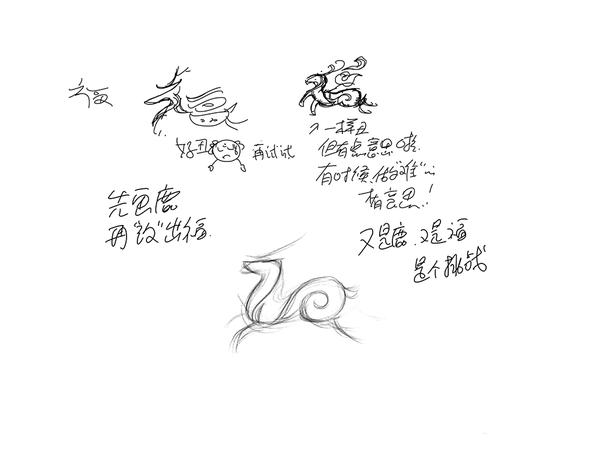 福
好丑
再试试
↗一样丑
但有点意思啦
有时候,做"难"
有意思!
先画鹿
再"改"出福.
又是鹿,又是福
是个挑战